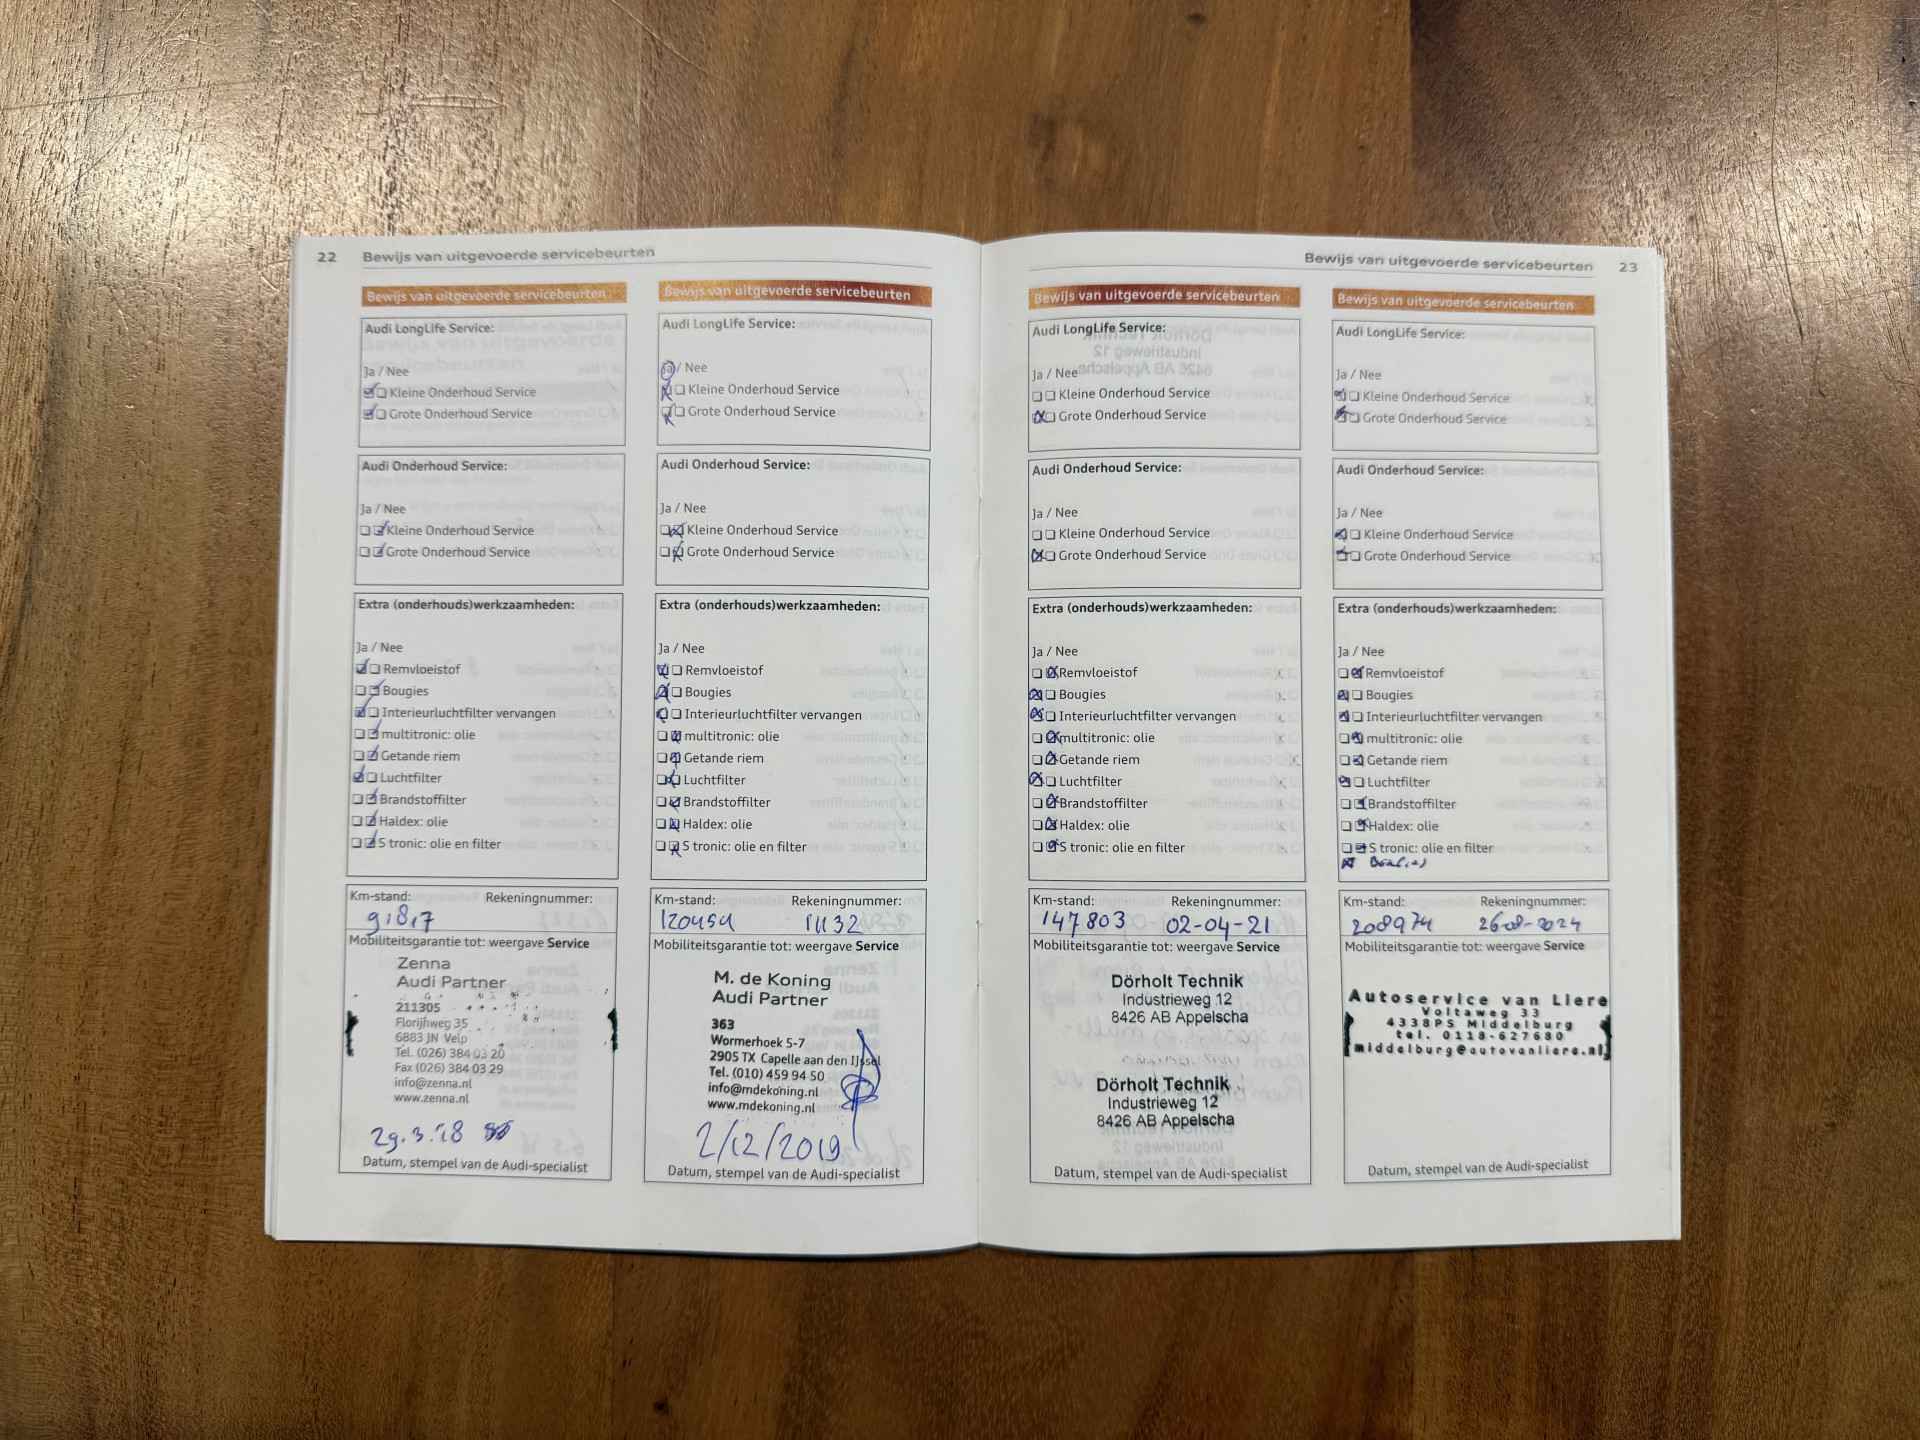 22 Bewijs van uitgevoerde servicebeurten
Bewijs van uitgevoerde servicebeurten
Audi LongLife Service:
Ja / Nee
Kleine Onderhoud Service
Grote Onderhoud Service
Audi Onderhoud Service:
Ja / Nee
Kleine Onderhoud Service
Grote Onderhoud Service
Extra (onderhouds)werkzaamheden:
Ja / Nee
Remvloeistof
Bougies
Interieurluchtfilter vervangen
multitronic: olie
Getande riem
Luchtfilter
Brandstoffilter
Haldex: olie
S tronic: olie en filter
Km-stand: Rekeningnummer:
Mobiliteitsgarantie tot: weergave Service
Zenna
Audi Partner
211305
Florijnweg 35
6883 JN Velp
Tel. (026) 384 03 20
Fax (026) 384 03 29
info@zenna.nl
www.zenna.nl
29.3.18
Datum, stempel van de Audi-specialist
Bewijs van uitgevoerde servicebeurten
Audi LongLife Service:
Ja / Nee
Kleine Onderhoud Service
Grote Onderhoud Service
Audi Onderhoud Service:
Ja / Nee
Kleine Onderhoud Service
Grote Onderhoud Service
Extra (onderhouds)werkzaamheden:
Ja / Nee
Remvloeistof
Bougies
Interieurluchtfilter vervangen
multitronic: olie
Getande riem
Luchtfilter
Brandstoffilter
Haldex: olie
S tronic: olie en filter
Km-stand: Rekeningnummer:
120454 11132
Mobiliteitsgarantie tot: weergave Service
M. de Koning
Audi Partner
363
Wormerhoek 5-7
2905 TX Capelle aan den IJssel
Tel. (010) 459 94 50
info@mdekoning.nl
www.mdekoning.nl
2/12/2019
Datum, stempel van de Audi-specialist
Bewijs van uitgevoerde servicebeurten 23
Bewijs van uitgevoerde servicebeurten
Audi LongLife Service:
Ja / Nee
Kleine Onderhoud Service
Grote Onderhoud Service
Audi Onderhoud Service:
Ja / Nee
Kleine Onderhoud Service
Grote Onderhoud Service
Extra (onderhouds)werkzaamheden:
Ja / Nee
Remvloeistof
Bougies
Interieurluchtfilter vervangen
multitronic: olie
Getande riem
Luchtfilter
Brandstoffilter
Haldex: olie
S tronic: olie en filter
Km-stand: Rekeningnummer:
147803 02-04-21
Mobiliteitsgarantie tot: weergave Service
Dörholt Technik
Industrieweg 12
8426 AB Appelscha
Dörholt Technik
Industrieweg 12
8426 AB Appelscha
Datum, stempel van de Audi-specialist
Bewijs van uitgevoerde servicebeurten
Audi LongLife Service:
Ja / Nee
Kleine Onderhoud Service
Grote Onderhoud Service
Audi Onderhoud Service:
Ja / Nee
Kleine Onderhoud Service
Grote Onderhoud Service
Extra (onderhouds)werkzaamheden:
Ja / Nee
Remvloeistof
Bougies
Interieurluchtfilter vervangen
multitronic: olie
Getande riem
Luchtfilter
Brandstoffilter
Haldex: olie
S tronic: olie en filter
Km-stand: Rekeningnummer:
208974 26-08-2024
Mobiliteitsgarantie tot: weergave Service
Autoservice van Liere
Voltaweg 33
4338PS Middelburg
tel. 0118-627680
middelburg@autovanliere.nl
Datum, stempel van de Audi-specialist